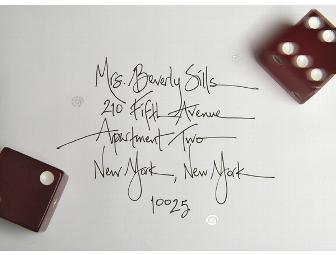 Mrs. Beverly Sills
210 Fifth Avenue
Apartment Two
New York, New York
10025